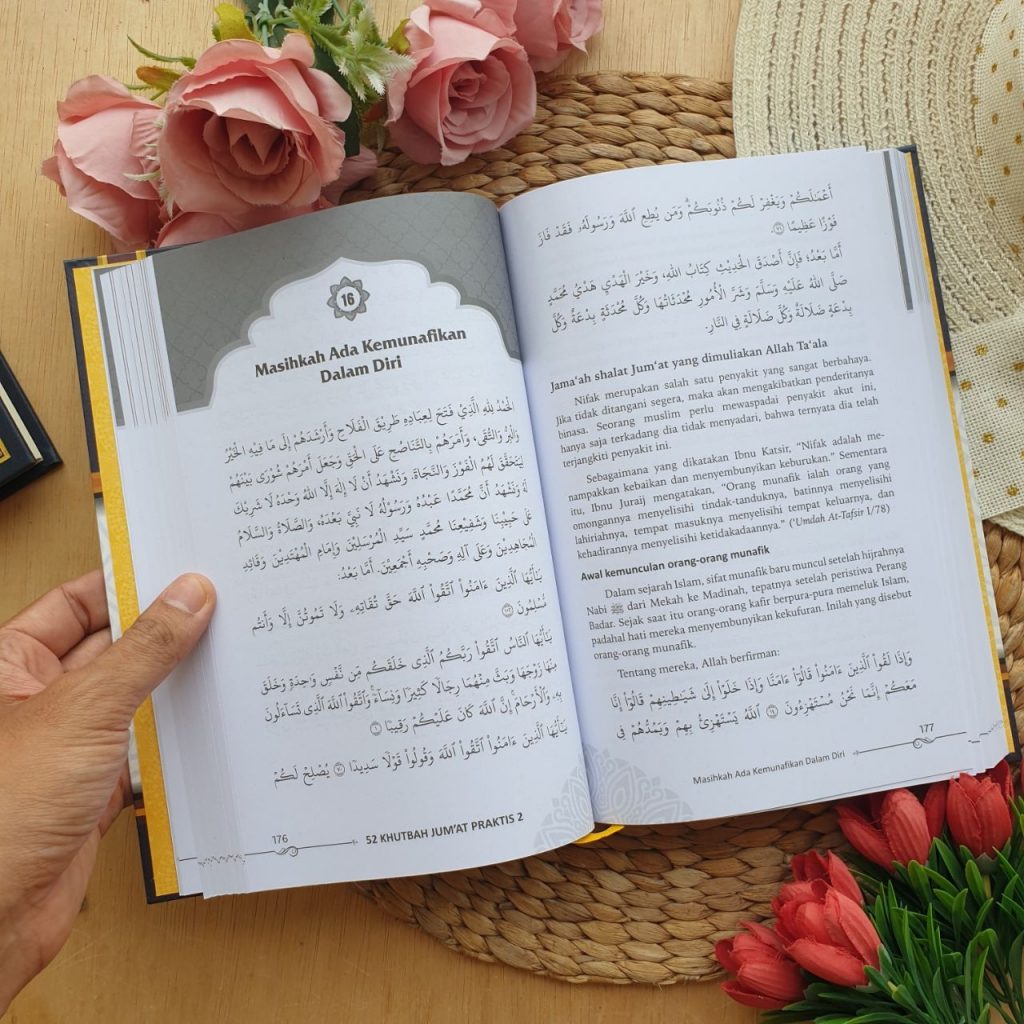 16
Masihkah Ada Kemunafikan
Dalam Diri
الحَمْدُ لِلهِ الَّذِي فَتَحَ لِعِبَادِهِ طَرِيْقَ الْفَلَاحِ وَأَرْشَدَهُمْ إِلَى مَا فِيهِ الْخَيْرُ
وَالْبِرُّ وَالتُّقَى، وَأَمَرَهُمْ بِالتَّنَاصُحِ عَلَى الْحَقِّ وَجَعَلَ أَمْرَهُمْ شُوْرَى بَيْنَهُمْ
لِيَتَحَقَّقَ لَهُمُ الْفَوْزُ وَالنَّجَاةُ. وَنَشْهَدُ أَنْ لَا إِلَهَ إِلَّا اللهُ وَحْدَهُ لَا شَرِيْكَ
لَهُ وَنَشْهَدُ أَنَّ مُحَمَّدًا عَبْدُهُ وَرَسُوْلُهُ لَا نَبِيَّ بَعْدَهُ، وَالصَّلَاةُ وَالسَّلَامُ
عَلَى حَبِيْبِنَا وَشَفِيْعِنَا مُحَمَّدٍ سَيِّدِ الْمُرْسَلِيْنَ وَإِمَامِ الْمُهْتَدِيْنَ وَقَائِدِ
الْمُجَاهِدِيْنَ وَعَلَى آلِهِ وَصَحْبِهِ أَجْمَعِيْنَ. أَمَّا بَعْدُ:
يَـٰٓأَيُّهَا ٱلَّذِينَ ءَامَنُوا۟ ٱتَّقُوا۟ ٱللَّهَ حَقَّ تُقَاتِهِۦ وَلَا تَمُوتُنَّ إِلَّا وَأَنتُم
مُّسْلِمُونَ ١٠٢
يَـٰٓأَيُّهَا ٱلنَّاسُ ٱتَّقُوا۟ رَبَّكُمُ ٱلَّذِى خَلَقَكُم مِّن نَّفْسٍ وَٰحِدَةٍ وَخَلَقَ
مِنْهَا زَوْجَهَا وَبَثَّ مِنْهُمَا رِجَالًا كَثِيرًا وَنِسَآءً ۚ وَٱتَّقُوا۟ ٱللَّهَ ٱلَّذِى تَسَآءَلُونَ
بِهِۦ وَٱلْأَرْحَامَ ۚ إِنَّ ٱللَّهَ كَانَ عَلَيْكُمْ رَقِيبًا ١
يَـٰٓأَيُّهَا ٱلَّذِينَ ءَامَنُوا۟ ٱتَّقُوا۟ ٱللَّهَ وَقُولُوا۟ قَوْلًا سَدِيدًا ٧٠ يُصْلِحْ لَكُمْ
176 52 KHUTBAH JUM'AT PRAKTIS 2
أَعْمَـٰلَكُمْ وَيَغْفِرْ لَكُمْ ذُنُوبَكُمْ ۗ وَمَن يُطِعِ ٱللَّهَ وَرَسُولَهُۥ فَقَدْ فَازَ
فَوْزًا عَظِيمًا ٧١
أَمَّا بَعْدُ؛ فَإِنَّ أَصْدَقَ الْحَدِيْثِ كِتَابُ اللهِ، وَخَيْرَ الْهَدْيِ هَدْيُ مُحَمَّدٍ
صَلَّى اللهُ عَلَيْهِ وَسَلَّمَ وَشَرَّ الْأُمُورِ مُحْدَثَاتُهَا وَكُلَّ مُحْدَثَةٍ بِدْعَةٌ وَكُلَّ
بِدْعَةٍ ضَلَالَةٌ وَكُلَّ ضَلَالَةٍ فِي النَّارِ.
Jama'ah shalat Jum'at yang dimuliakan Allah Ta'ala
Nifak merupakan salah satu penyakit yang sangat berbahaya.
Jika tidak ditangani segera, maka akan mengakibatkan penderitanya
binasa. Seorang muslim perlu mewaspadai penyakit akut ini,
hanya saja terkadang dia tidak menyadari, bahwa ternyata dia telah
terjangkiti penyakit ini.
Sebagaimana yang dikatakan Ibnu Katsir, "Nifak adalah me-
nampakkan kebaikan dan menyembunyikan keburukan." Sementara
itu, Ibnu Juraij mengatakan, "Orang munafik ialah orang yang
omongannya menyelisihi tindak-tanduknya, batinnya menyelisihi
lahiriahnya, tempat masuknya menyelisihi tempat keluarnya, dan
kehadirannya menyelisihi ketidakadaannya." ('Umdah At-Tafsir 1/78)
Awal kemunculan orang-orang munafik
Dalam sejarah Islam, sifat munafik baru muncul setelah hijrahnya
Nabi ﷺ dari Mekah ke Madinah, tepatnya setelah peristiwa Perang
Badar. Sejak saat itu orang-orang kafir berpura-pura memeluk Islam,
padahal hati mereka menyembunyikan kekufuran. Inilah yang disebut
orang-orang munafik.
Tentang mereka, Allah berfirman:
وَإِذَا لَقُوا۟ ٱلَّذِينَ ءَامَنُوا۟ قَالُوٓا۟ ءَامَنَّا وَإِذَا خَلَوْا۟ إِلَىٰ شَيَـٰطِينِهِمْ قَالُوٓا۟ إِنَّا
مَعَكُمْ إِنَّمَا نَحْنُ مُسْتَهْزِءُونَ ١٤ ٱللَّهُ يَسْتَهْزِئُ بِهِمْ وَيَمُدُّهُمْ فِى
Masihkah Ada Kemunafikan Dalam Diri 177